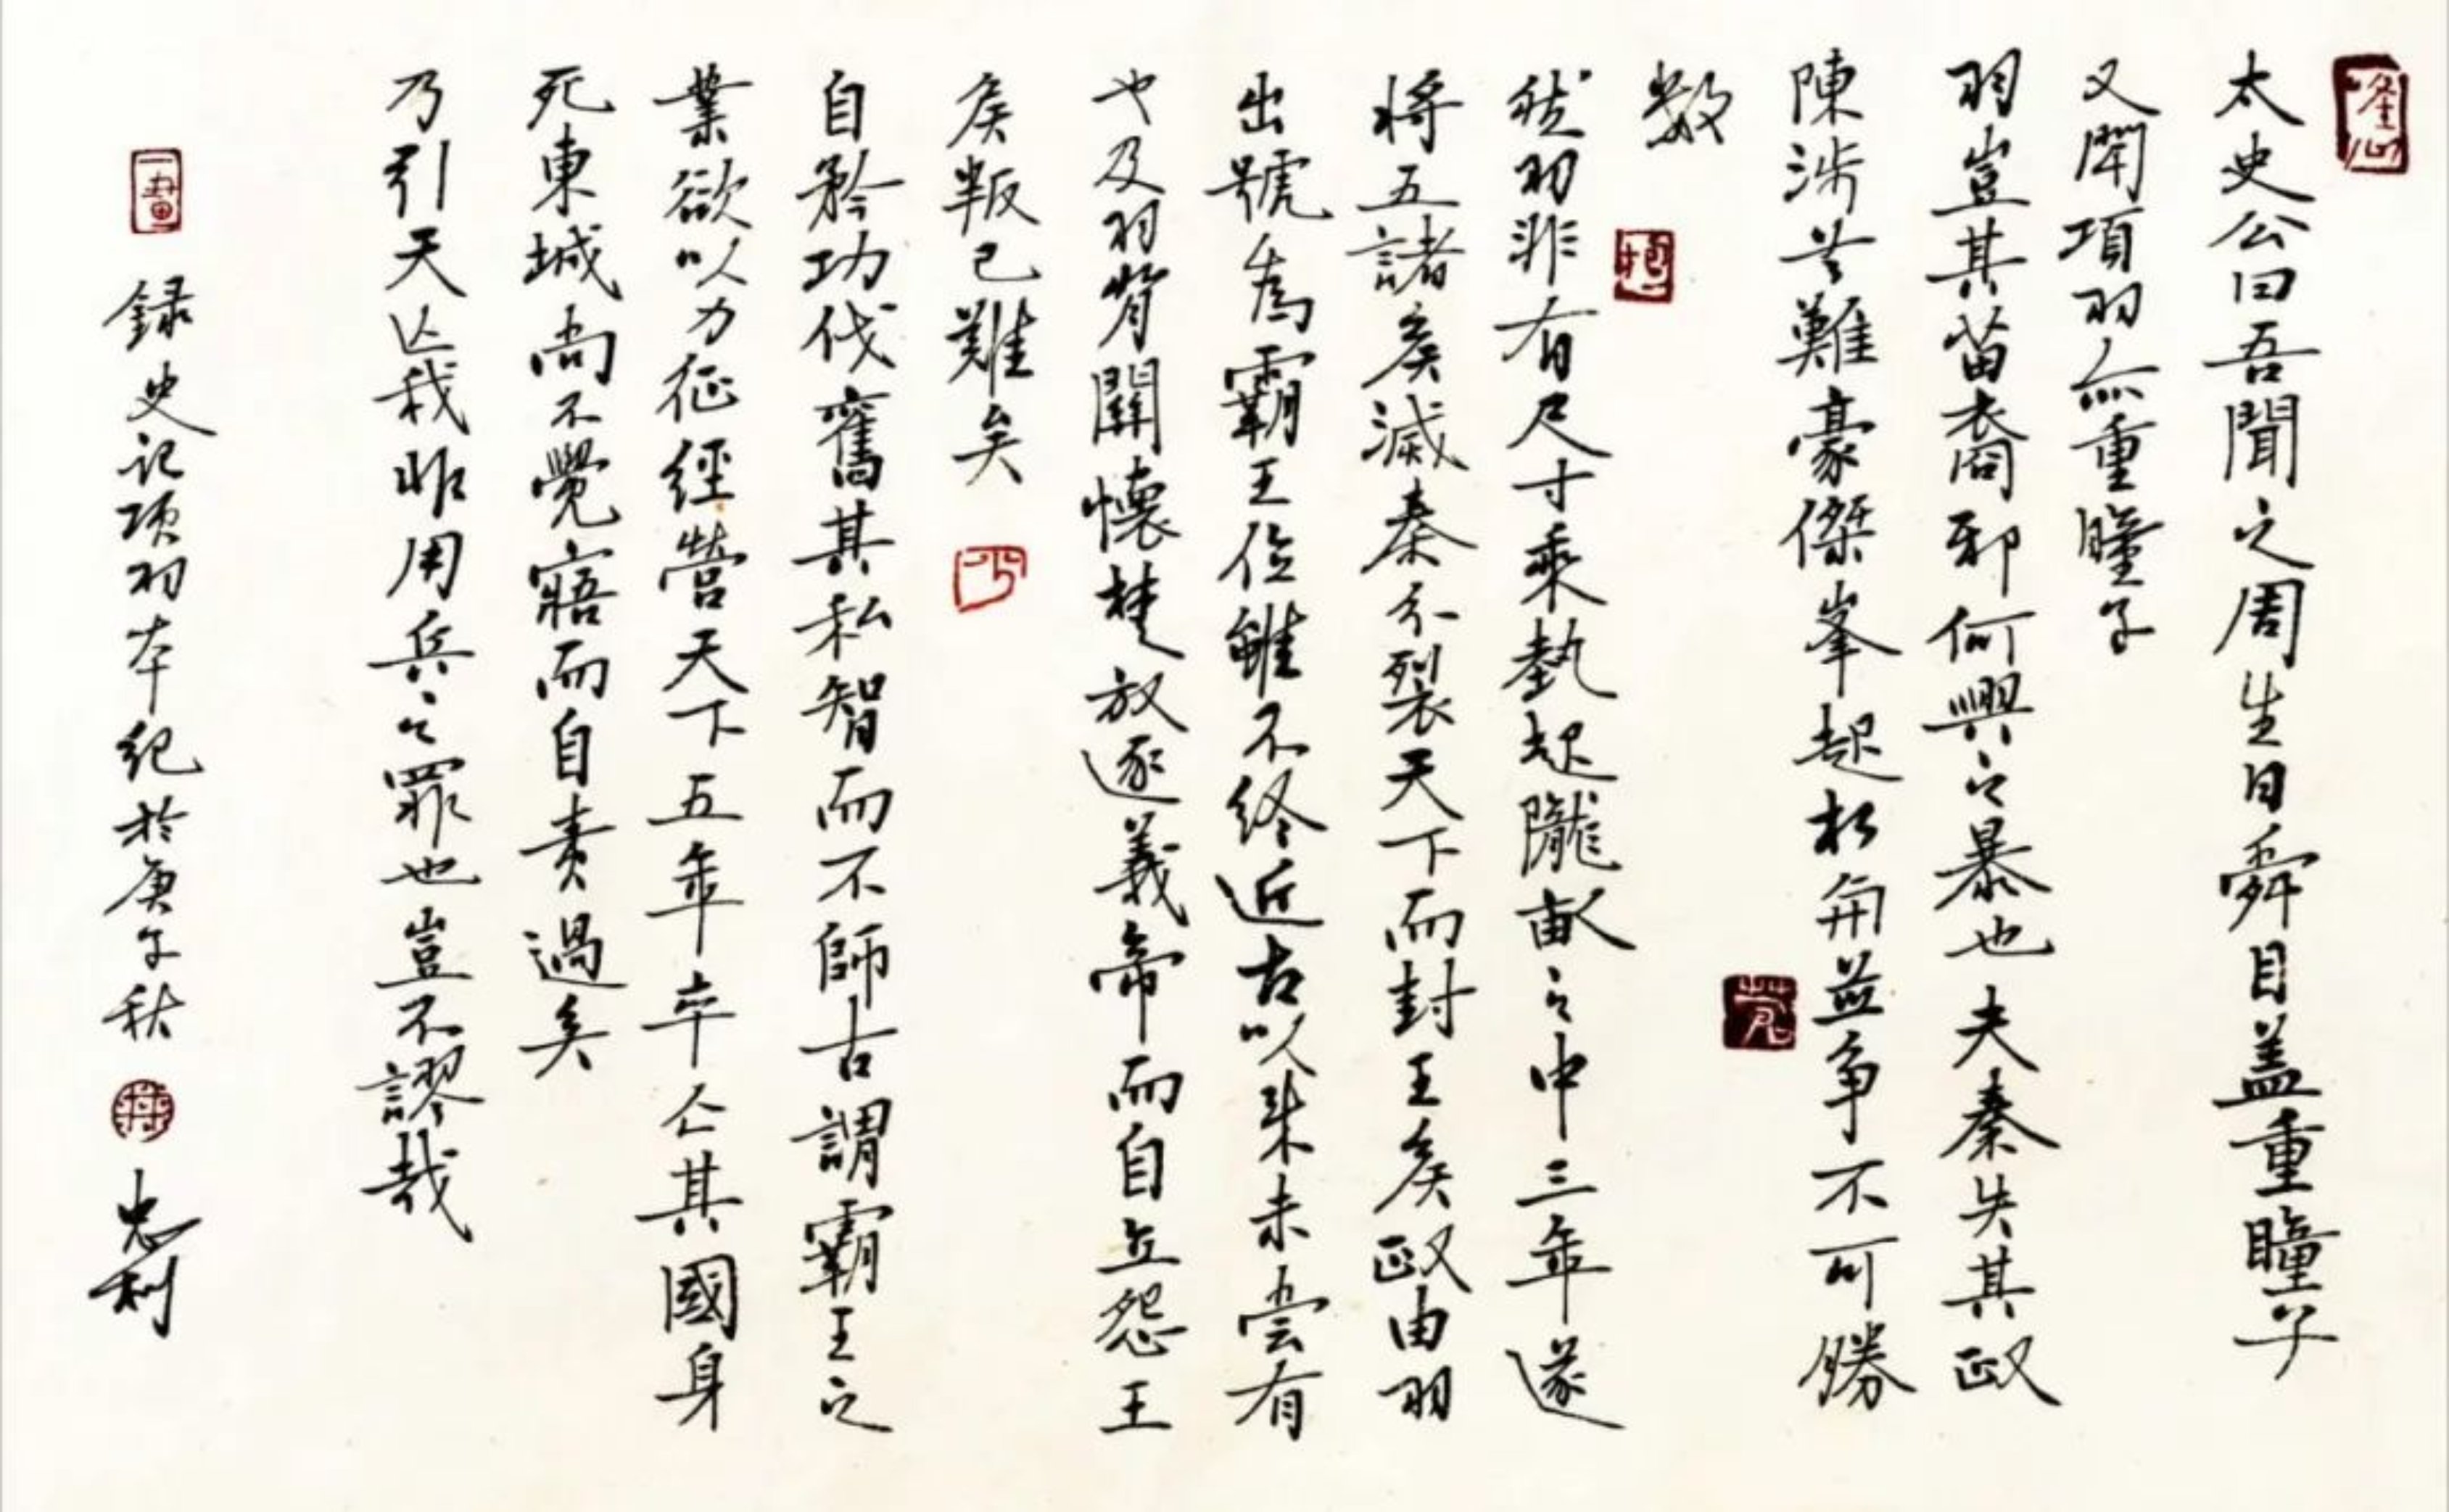 太史公曰吾聞之周生曰舜目蓋重瞳子
又聞項羽亦重瞳子
羽豈其苗裔邪何興之暴也夫秦失其政
陳涉首難豪傑峯起相與並爭不可勝
數
然羽非有尺寸乘埶起隴畝之中三年遂
將五諸矦滅秦分裂天下而封王矦政由羽
出號為霸王位雖不終近古以來未嘗有
也及羽背關懷楚放逐義帝而自立怨王
矦叛己難矣
自矜功伐奮其私智而不師古謂霸王之
業欲以力征經營天下五年卒亡其國身
死東城尚不覺寤而自責過矣
乃引天亡我非用兵之罪也豈不謬哉
録史记项羽本纪於庚子秋
忠利